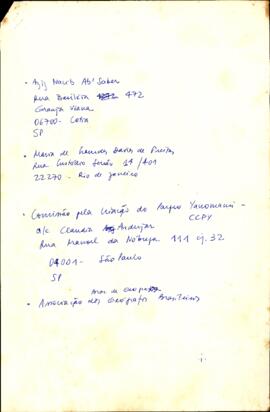 • Aziz Nacib Ab'Saber
Rua Brasiléia 472
Granja Viana
06700 - Cotia
SP
• Maria de Lourdes Davies de Freitas
Rua Gustavo 14/401
22270 - Rio de Janeiro
• Comissão pela Criação do Parque Yanomami -
CCPY
a/c Claudia Andujar
Rua Manoel da Nóbrega 111 cj. 32
04001 - São Paulo
SP
• Associação dos Geógrafos Brasileiros